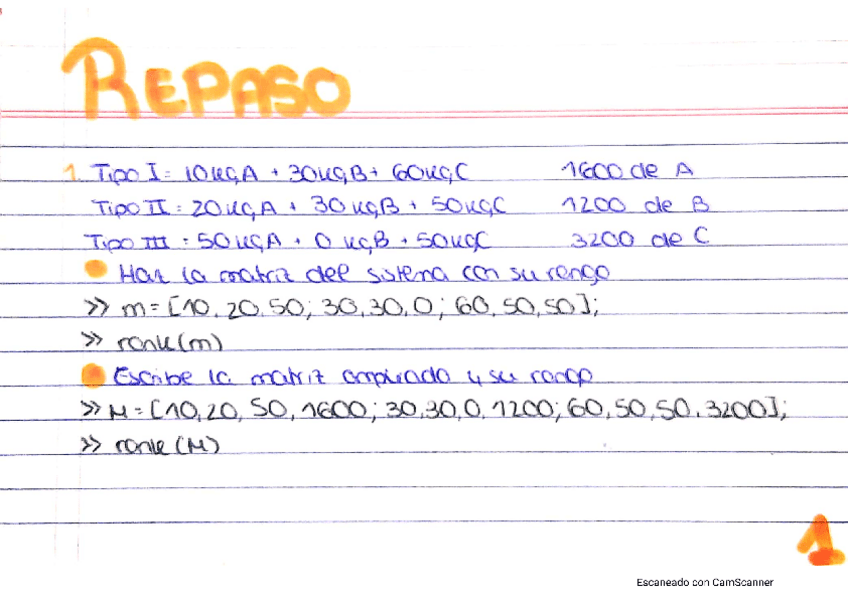 REPASO
1. Tipo I = 10kgA + 30kgB + 60kgC 1600 de A
Tipo II = 20kgA + 30kgB + 50kgC 1200 de B
Tipo III = 50kgA + 0 kgB + 50kgC 3200 de C
Haz la matriz del sistema con su rango
>> m = [10, 20, 50; 30, 30, 0; 60, 50, 50];
>> rank(m)
Escribe la matriz ampliada y su rango
>> M = [10, 20, 50, 1600; 30, 30, 0, 1200; 60, 50, 50, 3200];
>> rank(M)
1
Escaneado con CamScanner